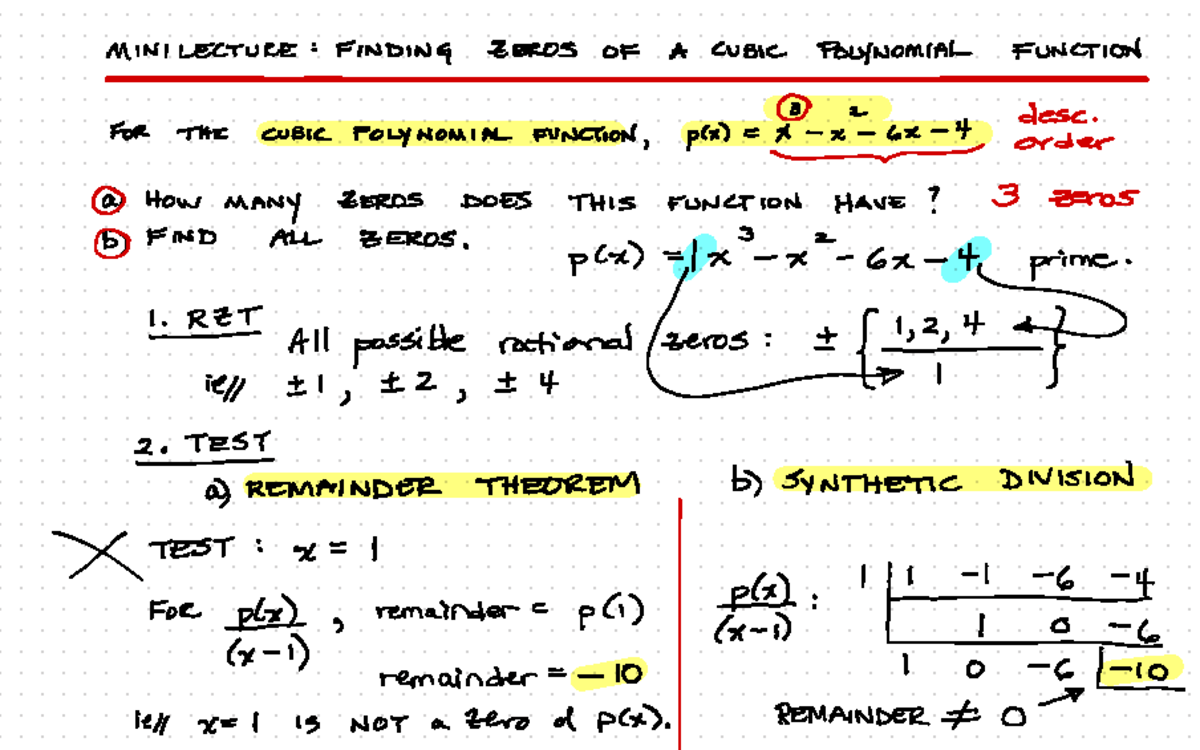 MINI LECTURE : FINDING ZEROS OF A CUBIC POLYNOMIAL FUNCTION
FOR THE CUBIC POLYNOMIAL FUNCTION, p(x) = x³ − x² − 6x − 4 desc. order
(a) HOW MANY ZEROS DOES THIS FUNCTION HAVE? 3 zeros
(b) FIND ALL ZEROS.
p(x) = 1x³ − x² − 6x − 4 prime.
1. RZT
All possible rational zeros : ± { 1, 2, 4 / 1 }
ie// ±1, ±2, ±4
2. TEST
a) REMAINDER THEOREM
TEST : x = 1
For p(x)/(x−1), remainder = p(1)
remainder = −10
ie// x = 1 IS NOT a zero of p(x).
b) SYNTHETIC DIVISION
p(x)/(x−1) : 1 | 1 −1 −6 −4
1 0 −6
1 0 −6 |−10
REMAINDER ≠ 0